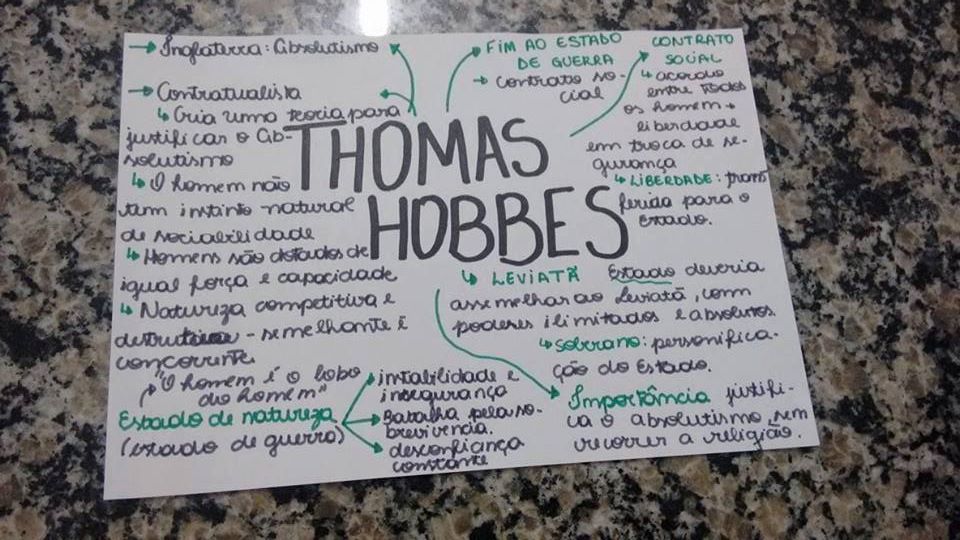 → Inglaterra: Absolutismo
→ Contratualista
↳ Cria uma teoria para
justificar o Ab-
solutismo
↳ O homem não
tem instinto natural
de sociabilidade
↳ Homens são dotados de
igual força e capacidade
↳ Natureza competitiva e
destrutiva - semelhante é
concorrente
"O homem é o lobo
do homem"
Estado de natureza
(estado de guerra)
instabilidade e
insegurança
Batalha pela so-
brevivencia.
desconfiança
constante
THOMAS
HOBBES
FIM AO ESTADO
DE GUERRA
→ contrato so-
cial
CONTRATO
SOCIAL
↳ acordo
entre todos
os homem →
liberdade
em troca de se-
gurança
↳ LIBERDADE: trans
ferida para o
Estado.
↳ LEVIATÃ Estado deveria
assemelhar ao leviatã, com
poderes ilimitados e absolutos.
↳ Soberano: personifica-
ção do Estado.
Importância justifi-
va o absolutismo sem
recorrer a religião.